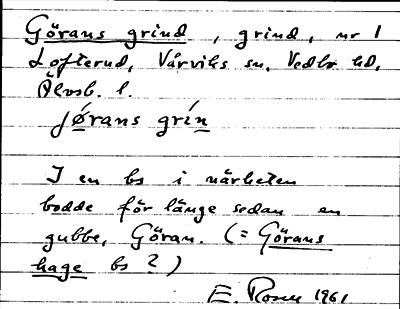 Görans grind, grind, nr 1
Lofterud, Vårviks sn, Vedbo hd,
Älvsb. l.
jǿrans grín
I en bs i närheten
bodde för länge sedan en
gubbe, Göran. (= Görans
hage bs ?)
E. Rosen 1961